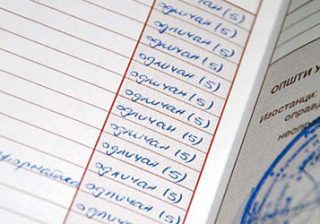 одличан (5)
одличан (5)
одличан (5)
одличан (5)
одличан (5)
одличан (5)
одличан (5)
одличан (5)
одличан (5)
одличан (5)
одличан (5)
ОПШТИ У
Изостанци:
оправ
неопр